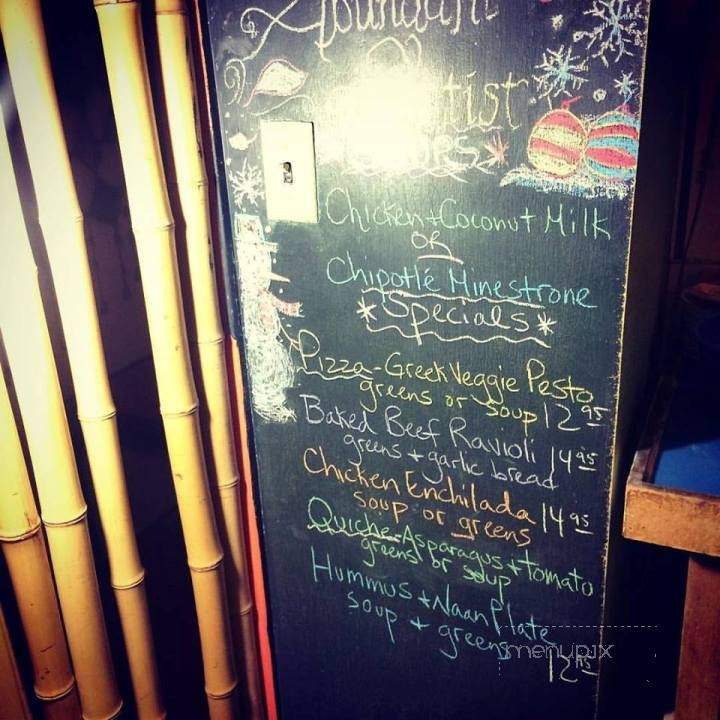 Abundant
Chicken + Coconut Milk
OR
Chipotlé Minestrone
*Specials*
Pizza - Greek Veggie Pesto
greens or soup 12 95
Baked Beef Ravioli
greens + garlic bread 14 95
Chicken Enchilada
soup or greens 14 95
Quiche - Asparagus + tomato
greens or soup
Hummus + Naan Plate
soup + greens
menupix